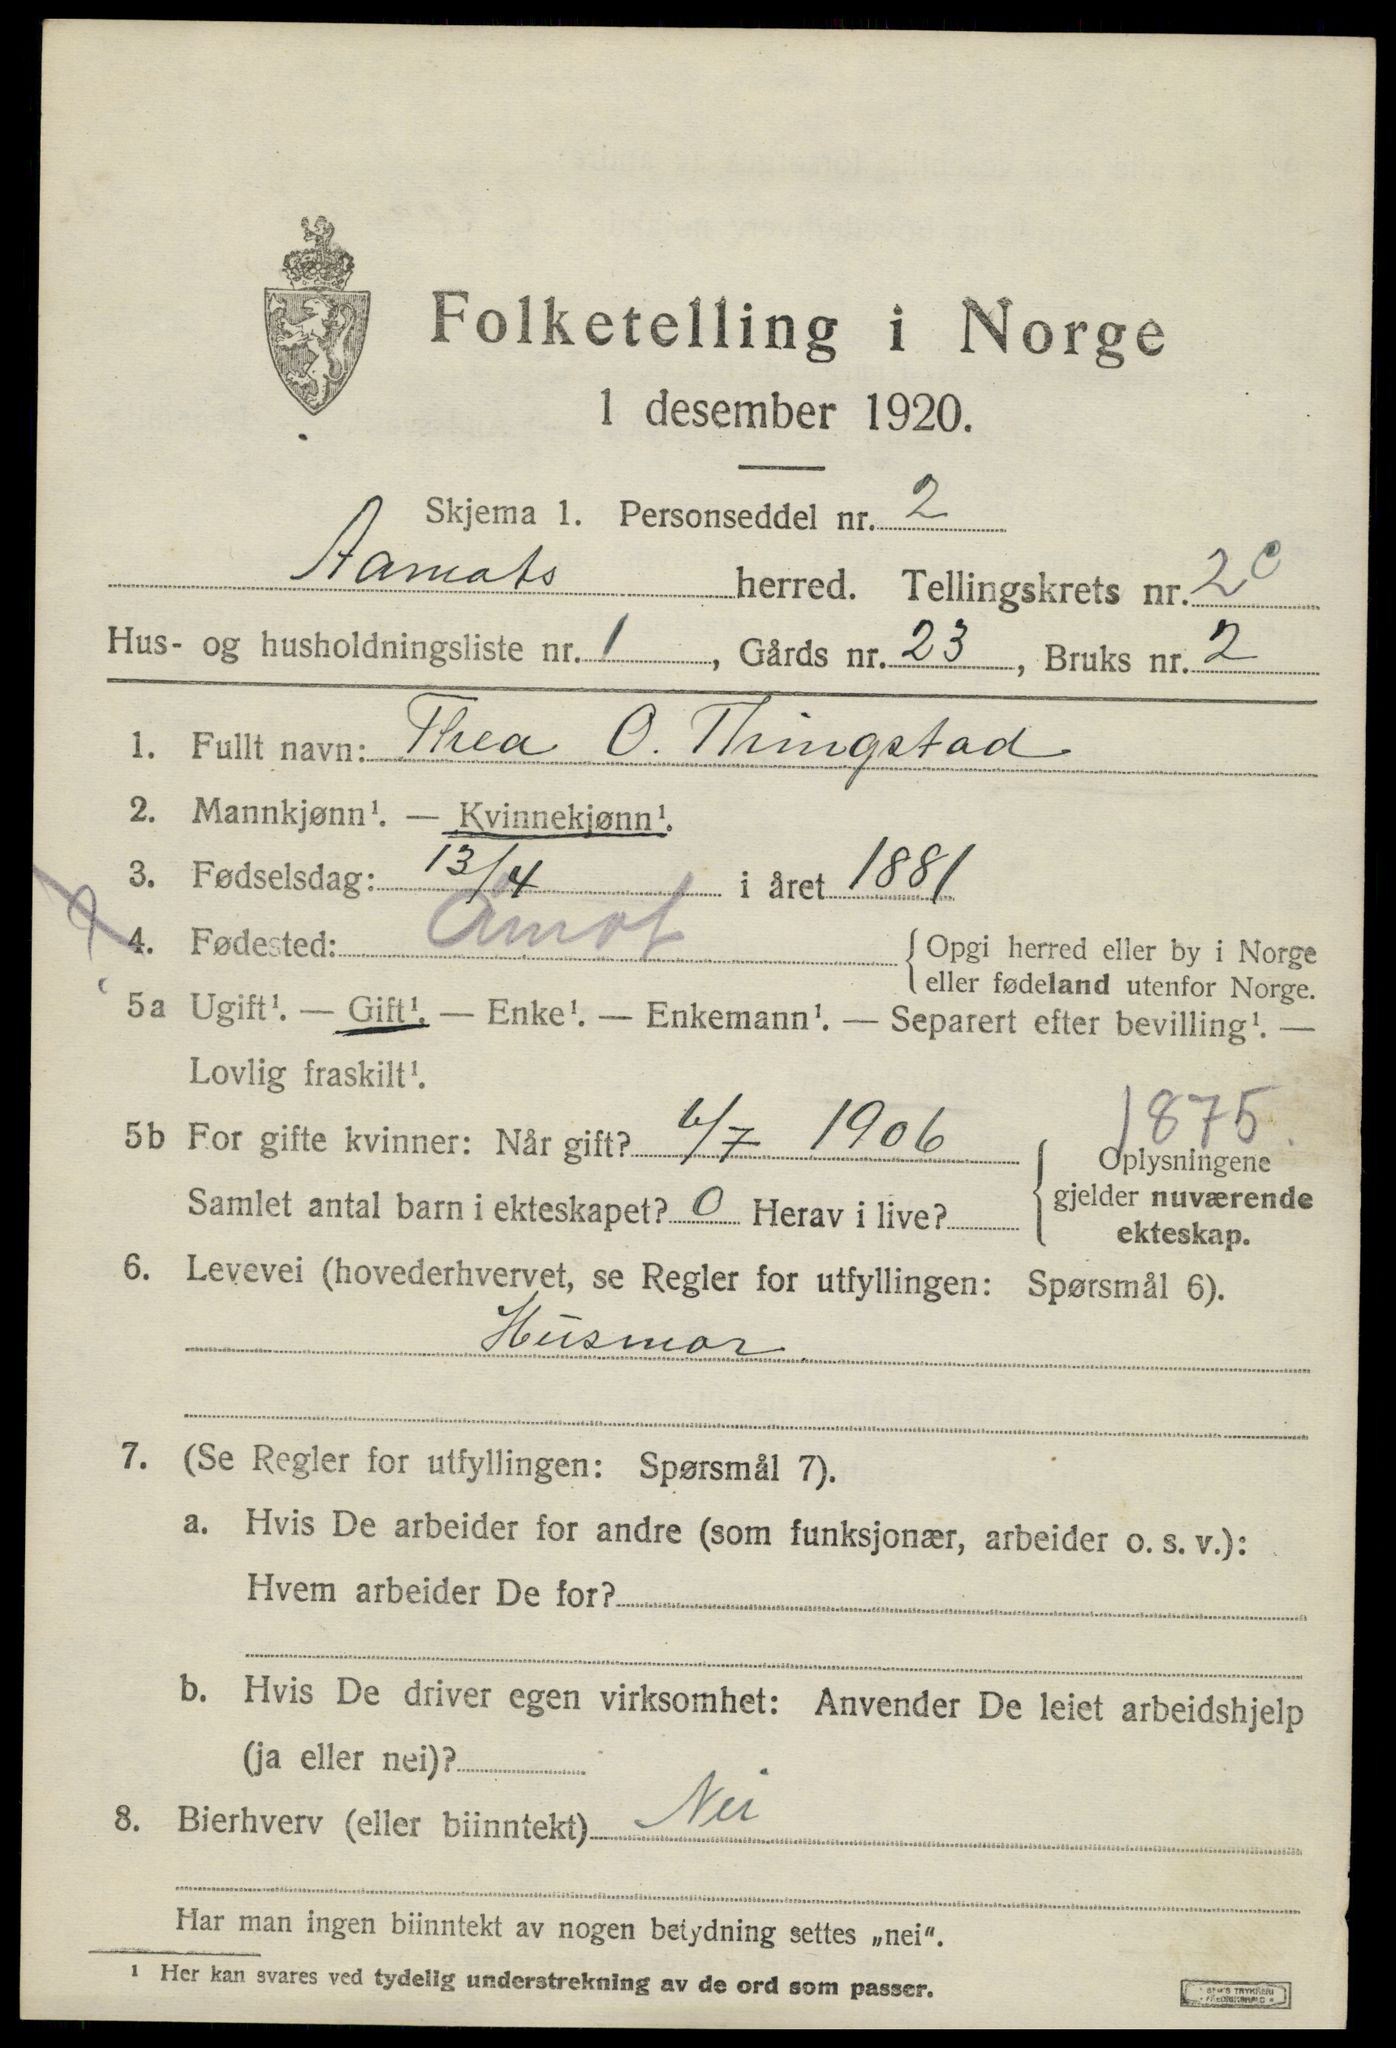 Folketelling i Norge
1 desember 1920.
Skjema 1. Personseddel nr. 2
Aamots herred. Tellingskrets nr. 2 c
Hus- og husholdningsliste nr. 1, Gårds nr. 23, Bruks nr. 2
1. Fullt navn: Thea O. Thingstad
2. Mannkjønn¹. — Kvinnekjønn¹.
3. Fødselsdag: 13/4 i året 1881
4. Fødested: Åmot { Opgi herred eller by i Norge
eller fødeland utenfor Norge.
5a Ugift¹. — Gift¹. — Enke¹. — Enkemann¹. — Separert efter bevilling¹. —
Lovlig fraskilt¹.
1875
5b For gifte kvinner: Når gift? 6/7 1906 { Oplysningene
gjelder nuværende
ekteskap.
Samlet antal barn i ekteskapet? 0 Herav i live?
6. Levevei (hovederhvervet, se Regler for utfyllingen: Spørsmål 6).
Husmor
7. (Se Regler for utfyllingen: Spørsmål 7).
a. Hvis De arbeider for andre (som funksjonær, arbeider o. s. v.):
Hvem arbeider De for?
b. Hvis De driver egen virksomhet: Anvender De leiet arbeidshjelp
(ja eller nei)?
8. Bierhverv (eller biinntekt) Nei
Har man ingen biinntekt av nogen betydning settes „nei“.
¹ Her kan svares ved tydelig understrekning av de ord som passer.